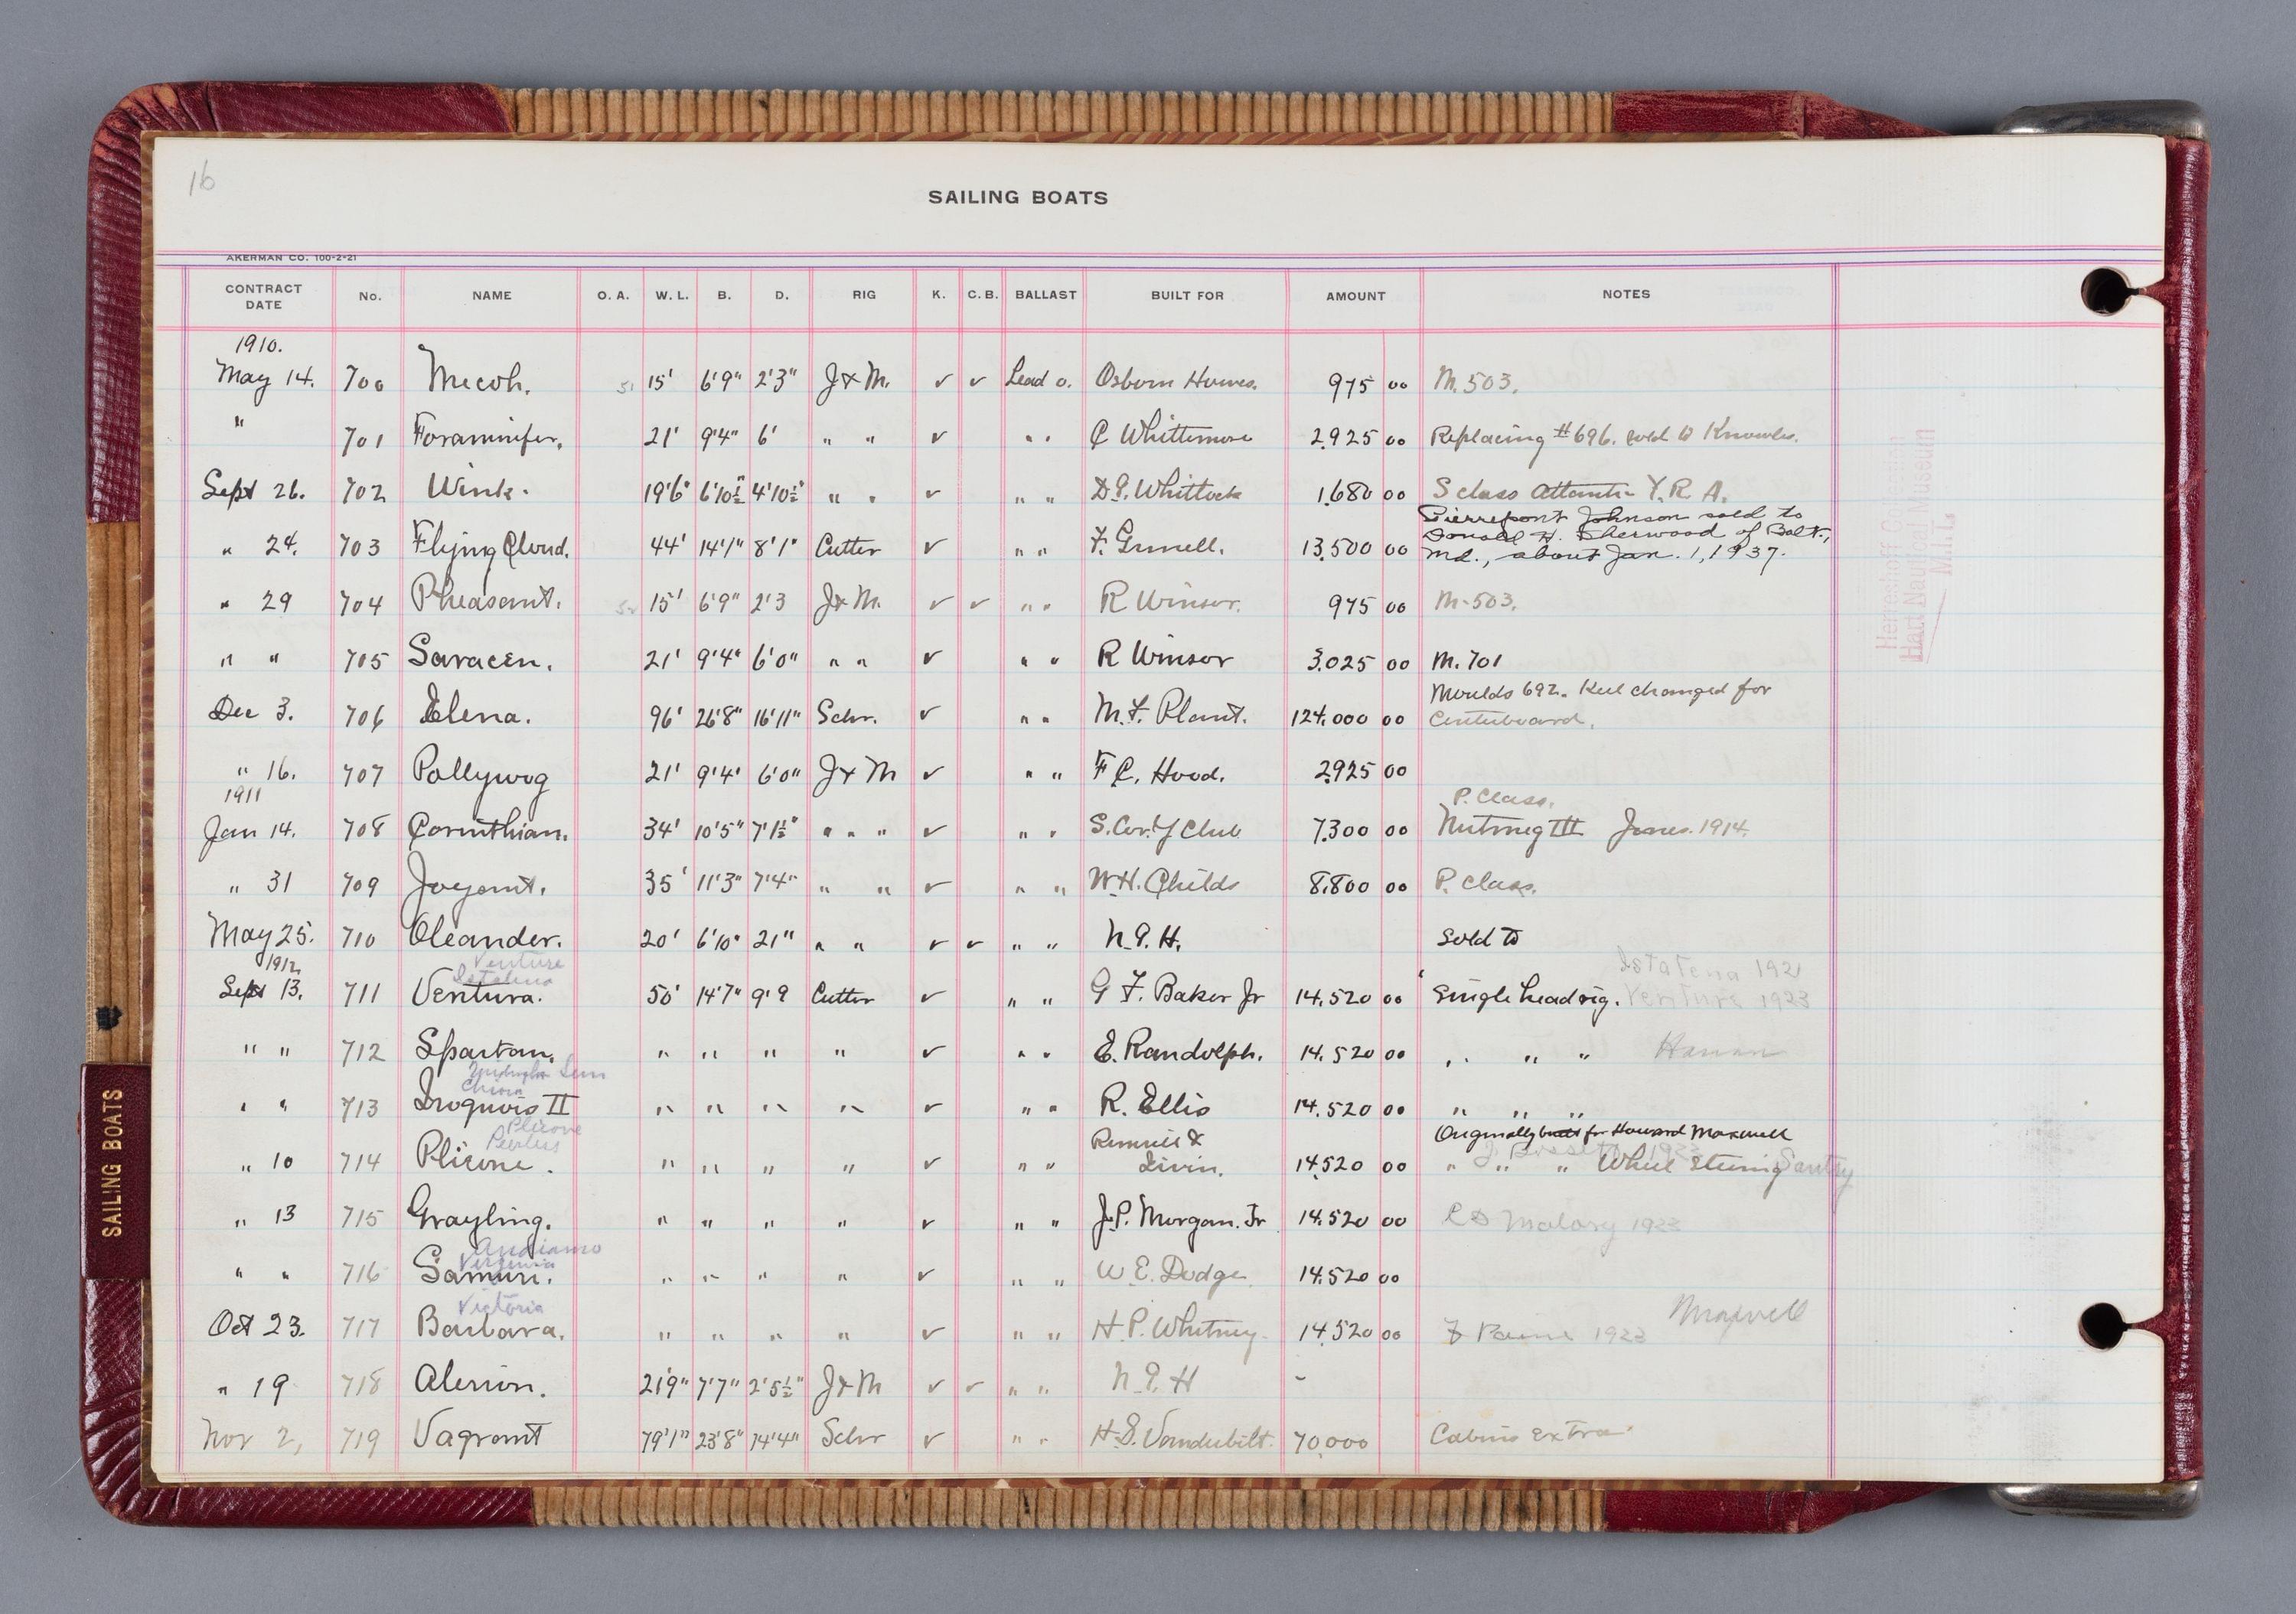 16
SAILING BOATS
AKERMAN CO. 100-2-21
CONTRACT DATE No. NAME O. A. W. L. B. D. RIG K. C. B. BALLAST BUILT FOR AMOUNT NOTES
1910.
May 14. 700 Micoh. 15' 6'9" 2'3" J & M. ✓ ✓ Lead o. Osborn Howes. 975 00 M. 503.
" 701 Foraminifer. 21' 9'4" 6' " " ✓ " " C Whittemore 2925 00 Replacing #696. sold to Knowles.
Sept 26. 702 Wink. 19'6" 6'10½" 4'10½" " " ✓ " " D.E. Whitlock 1680 00 S class Atlantic Y. R. A.
" 24. 703 Flying Cloud. 44' 14'1" 8'1" Cutter ✓ " " F. Grinell. 13,500 00 Pierrepont Johnson sold to
Donald H. Sherwood of Balt.,
Md., about Jan. 1, 1937.
" 29 704 Pheasant. 15' 6'9" 2'3 J & M. ✓ ✓ " " R Winsor. 975 00 M-503.
" " 705 Saracen. 21' 9'4" 6'0" " " ✓ " " R Winsor 3.025 00 M. 701
Dec 3. 706 Elena. 96' 26'8" 16'11" Schr. ✓ " " M. F. Plant. 124.000 00 Moulds 692. Keel changed for
Centerboard.
" 16. 707 Pollywog 21' 9'4" 6'0" J & M ✓ " " F C. Hood. 2925 00
1911
Jan 14. 708 Corinthian. 34' 10'5" 7'1½" " " " ✓ " " S. Cor. Y Club 7300 00 P. Class.
Nutmeg III Jones. 1914.
" 31 709 Joyant. 35' 11'3" 7'4" " " ✓ " " W.H. Childs 8.800 00 P. Class.
May 25. 710 Oleander. 20' 6'10" 21" " " ✓ ✓ " " N. G. H. Sold to
1912
Venture
Istalena
Sept 13. 711 Ventura. 50' 14'7" 9'9 Cutter ✓ " " G F. Baker Jr 14.520 00 Single head rig. Istalena 1921
Venture 1923
" " 712 Spartan. " " " " ✓ " " E. Randolph. 14.520 00 " " " Hanan
Midnight Sun
Chiora
" " 713 Iroquois II " " " " ✓ " " R. Ellis 14.520 00 " " "
Plicone
Peerless
" 10 714 Plicone. " " " " ✓ " " 14.520 00 Originally built for Howard Maxwell
" " " Wheel Steering
" 13 715 Grayling. " " " " ✓ " " J.P. Morgan. Jr 14.520 00 C D Malory 1923
Andiamo
Virginia
" " 716 Samuri. " " " " ✓ " " W. E. Dodge 14.520 00
Victoria
Oct 23. 717 Barbara. " " " " ✓ " " H. P. Whitney 14.520 00 F Paine 1923 Maxwell
" 19 718 Alerion. 21'9" 7'7" 2'5½" J & M ✓ ✓ " " N. G. H -
Nov 2, 719 Vagrant 79'1" 23'8" 14'4" Schr ✓ " " H. S. Vanderbilt. 70.000 Cabins extra
SAILING BOATS
Hart Nautical Museum
M.I.T.